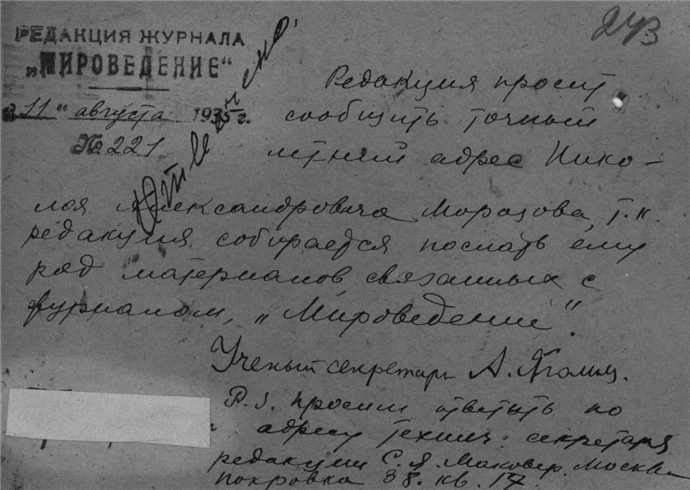 243
РЕДАКЦИЯ ЖУРНАЛА
„МИРОВЕДЕНИЕ“
„11“ августа 1935 г.
№ 221
Редакция просит
сообщить точный
летний адрес Нико-
лая Александровича Морозова, т.к.
редакция собирается послать ему
ряд материалов связанных с
журналом, „Мироведение“.
Ученый секретарь А.
P.S. просим ответить по
адресу технич. секретаря
редакции С.Я. Маковер. Москва
покровка 38. кв. 17.